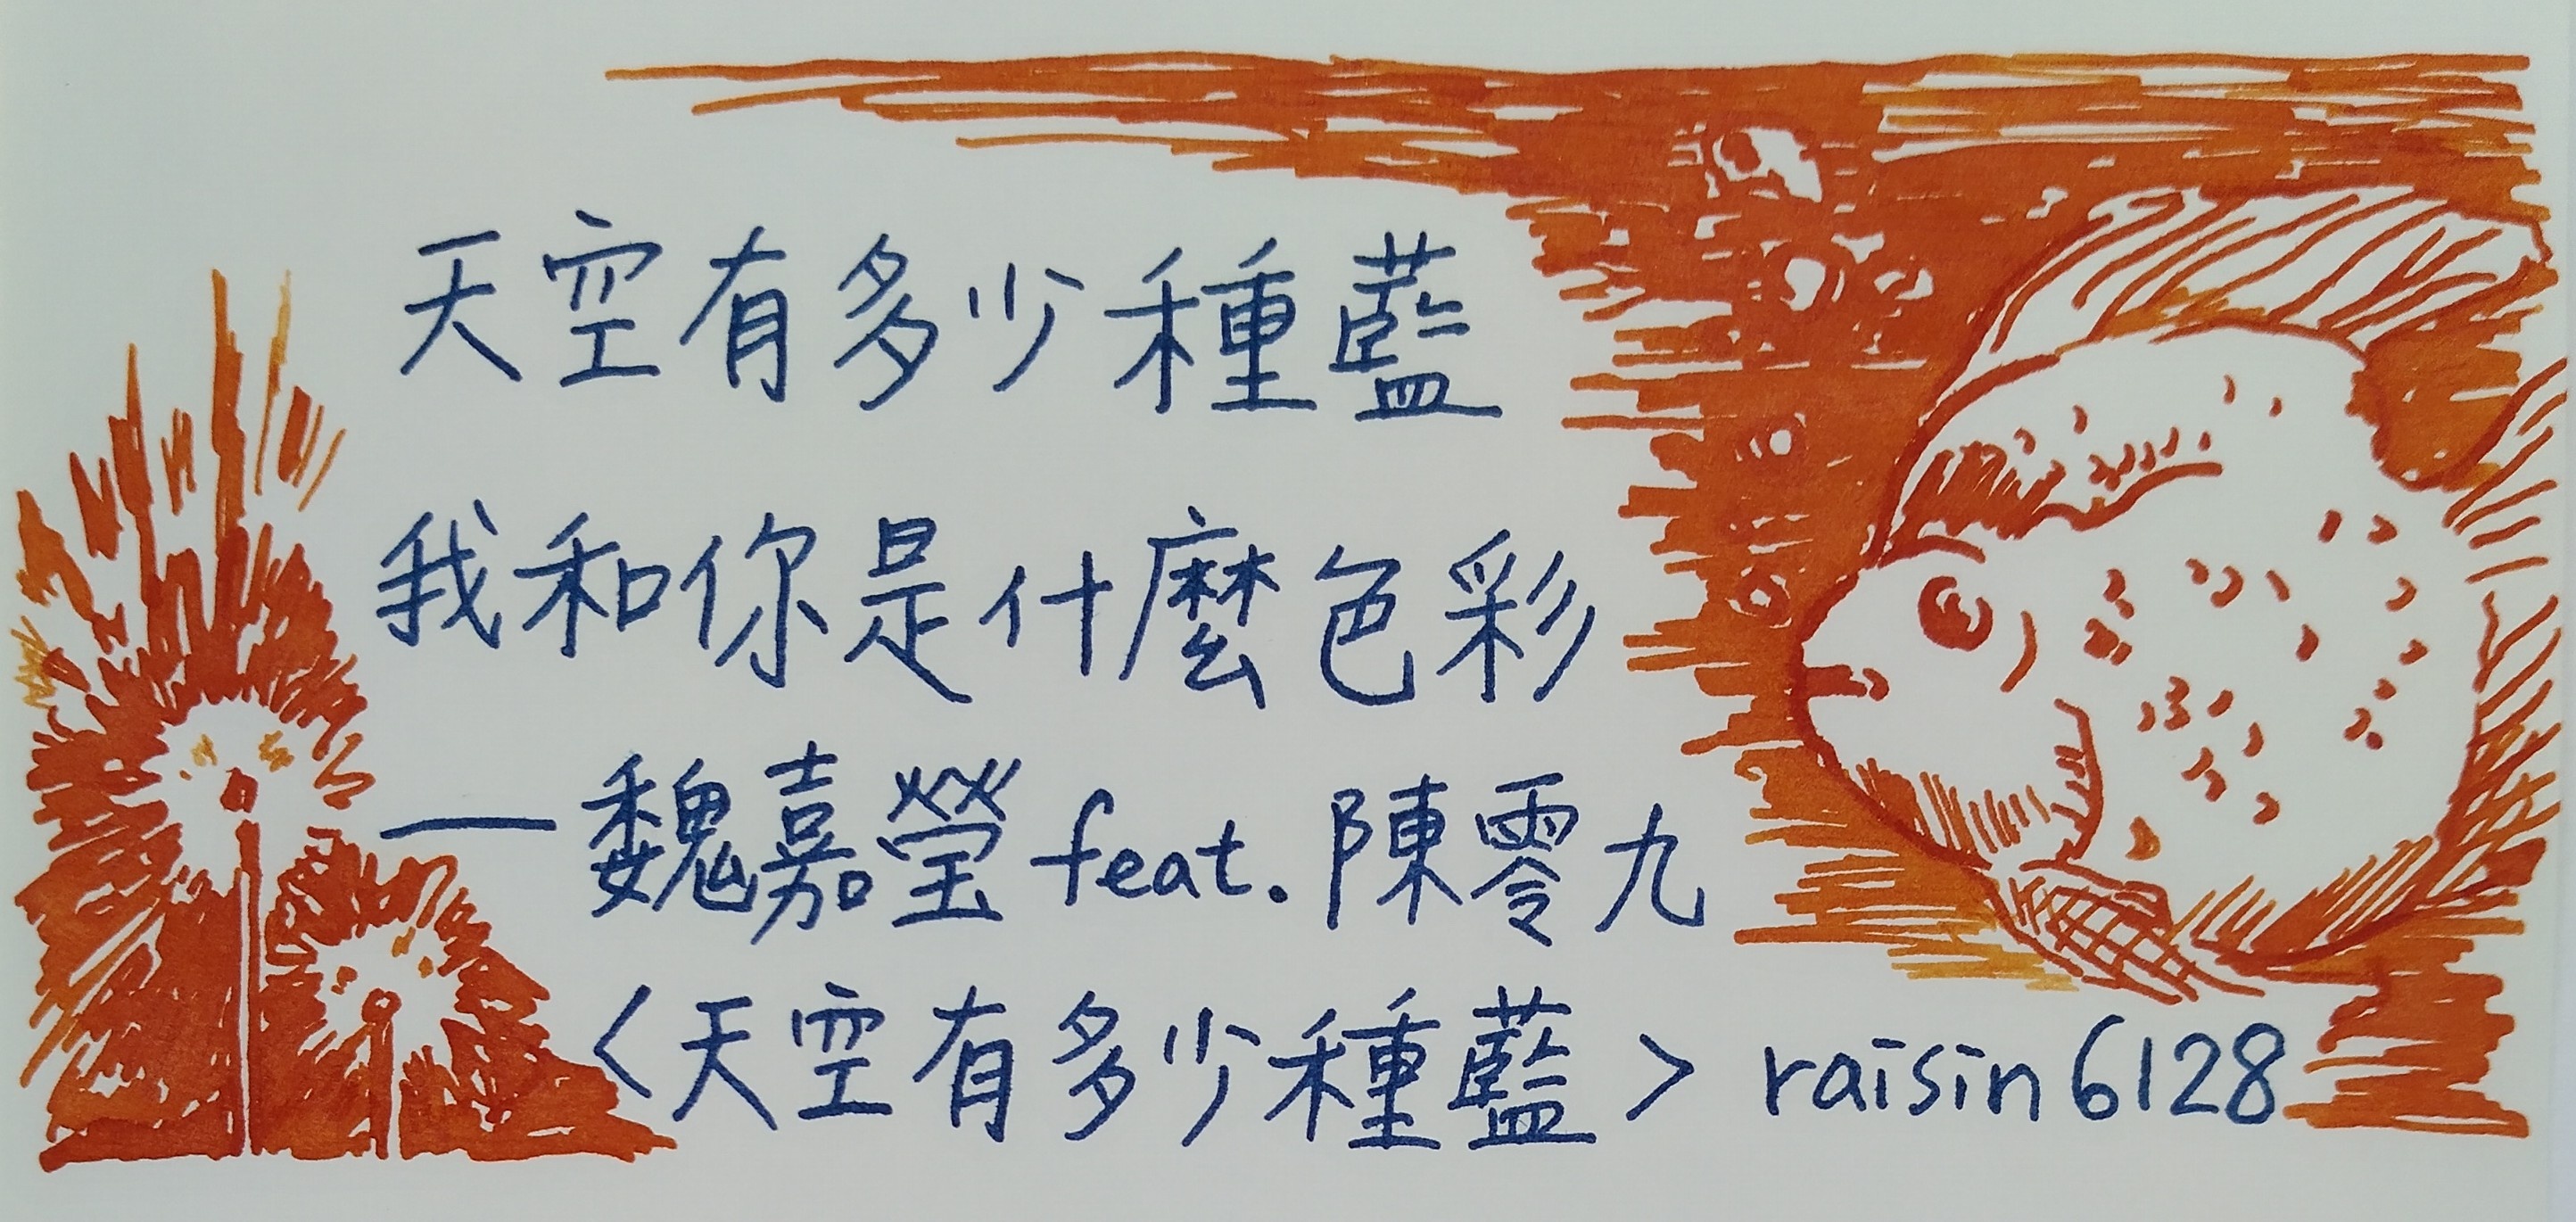 天空有多少種藍
我和你是什麼色彩
—魏嘉瑩 feat. 陳零九
<天空有多少種藍> raisin6128